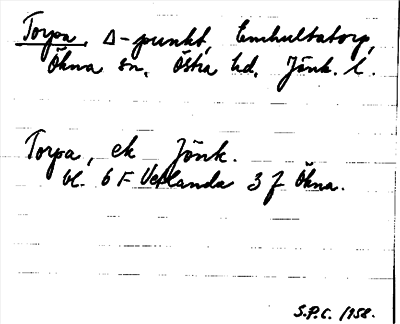 Torpa, Δ-punkt, Emhultatorp,
Ökna sn, Östra hd, Jönk. l.
Torpa, ek Jönk.
bl. 6 F Vetlanda 3 f Ökna.
S.P.C. 1958.